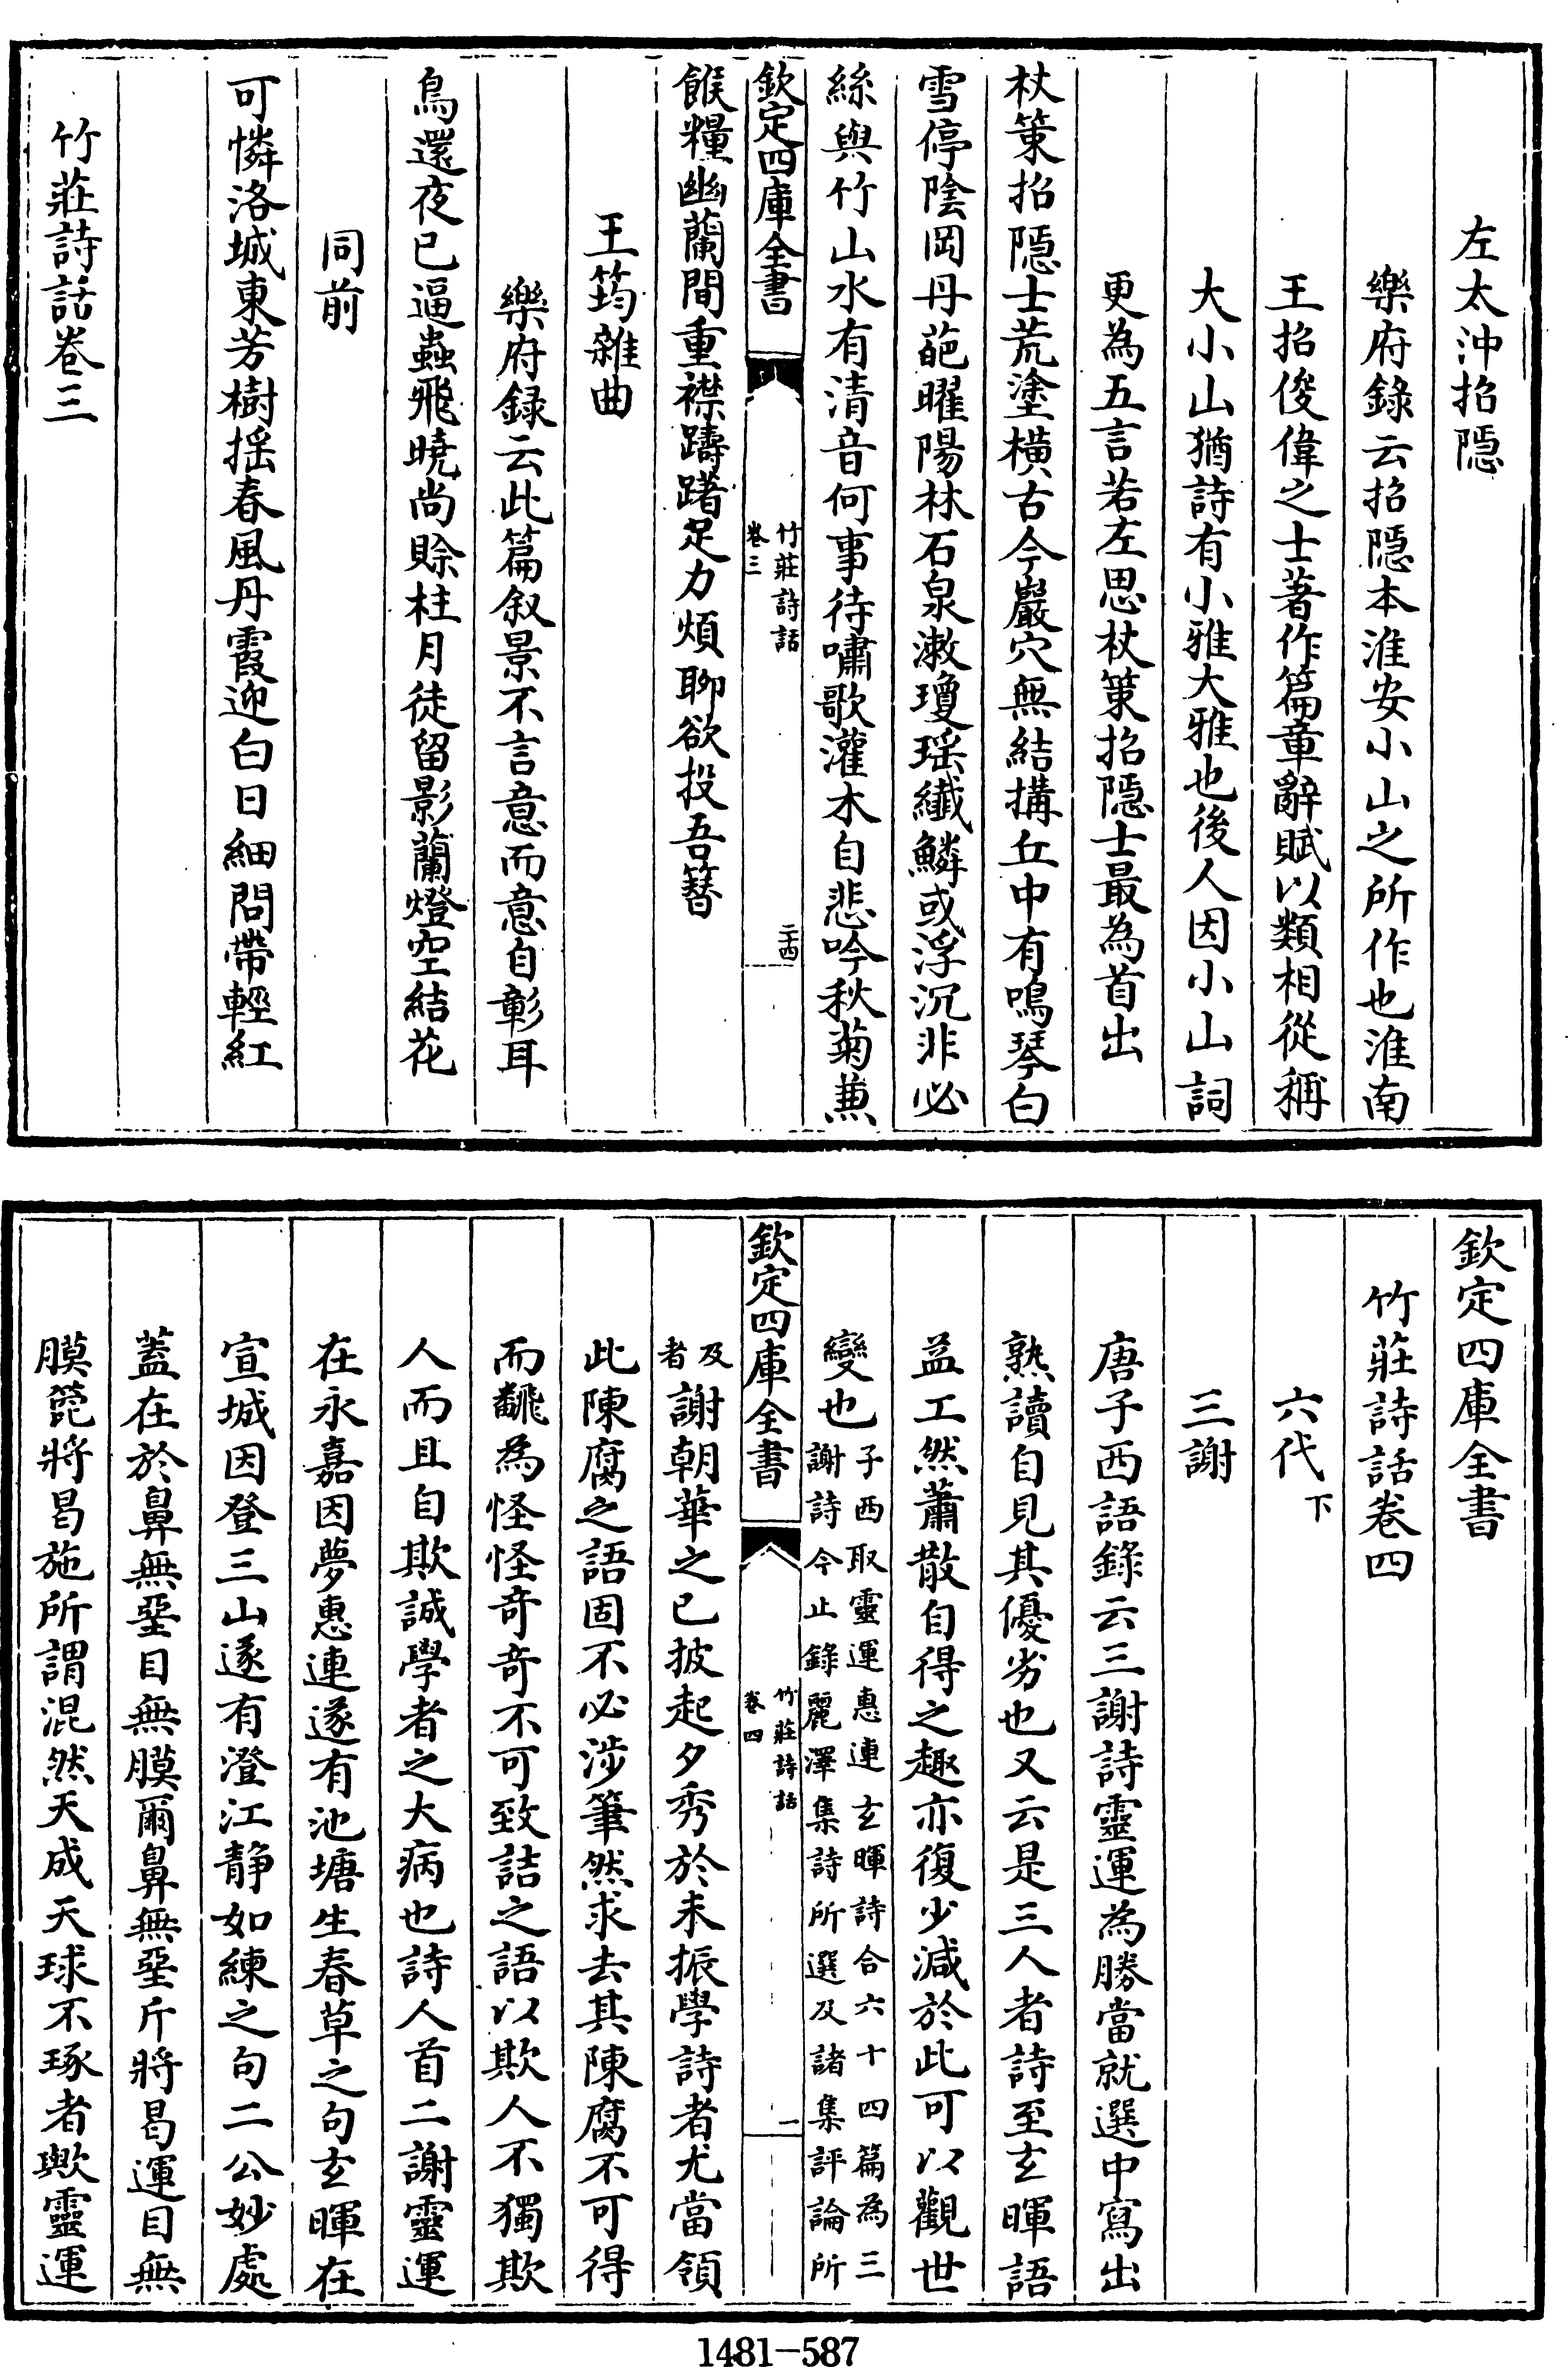 左太沖招隠
樂府錄云招隠本淮安小山之所作也淮南
王招俊偉之士著作篇章辭賦以類相從稱
大小山猶詩有小雅大雅也後人因小山詞
更為五言若左思杖策招隠士最為首出
杖策招隠士荒塗横古今巖穴無結構丘中有鳴琴白
雪停陰岡丹葩曜陽林石泉漱瓊瑶纖鱗或浮沉非必
絲與竹山水有清音何事待嘯歌灌木自悲吟秋菊兼
欽定四庫全書
竹莊詩話
卷三
二十四
餱糧幽蘭間重襟躊躇足力煩聊欲投吾簪
王筠雜曲
樂府録云此篇叙景不言意而意自彰耳
鳥還夜已逼蟲飛曉尚賒桂月徒留影蘭燈空結花
同前
可憐洛城東芳樹揺春風丹霞迎白日細問帶輕紅
竹莊詩話卷三
欽定四庫全書
竹莊詩話卷四
六代下
三謝
唐子西語錄云三謝詩靈運為勝當就選中寫出
熟讀自見其優劣也又云是三人者詩至玄暉語
益工然蕭散自得之趣亦復少減於此可以觀世
變也子西取靈運惠連玄暉詩合六十四篇為三
謝詩今止錄麗澤集詩所選及諸集評論所
欽定四庫全書
竹莊詩話
卷四
一
及
者謝朝華之已披起夕秀於未振學詩者尤當領
此陳腐之語固不必涉筆然求去其陳腐不可得
而飜為怪怪奇奇不可致詰之語以欺人不獨欺
人而且自欺誠學者之大病也詩人首二謝靈運
在永嘉因夢惠連遂有池塘生春草之句玄暉在
宣城因登三山遂有澄江静如練之句二公妙處
蓋在於鼻無堊目無膜爾鼻無堊斤將曷運目無
膜箆將曷施所謂混然天成天球不琢者歟靈運
1481-587